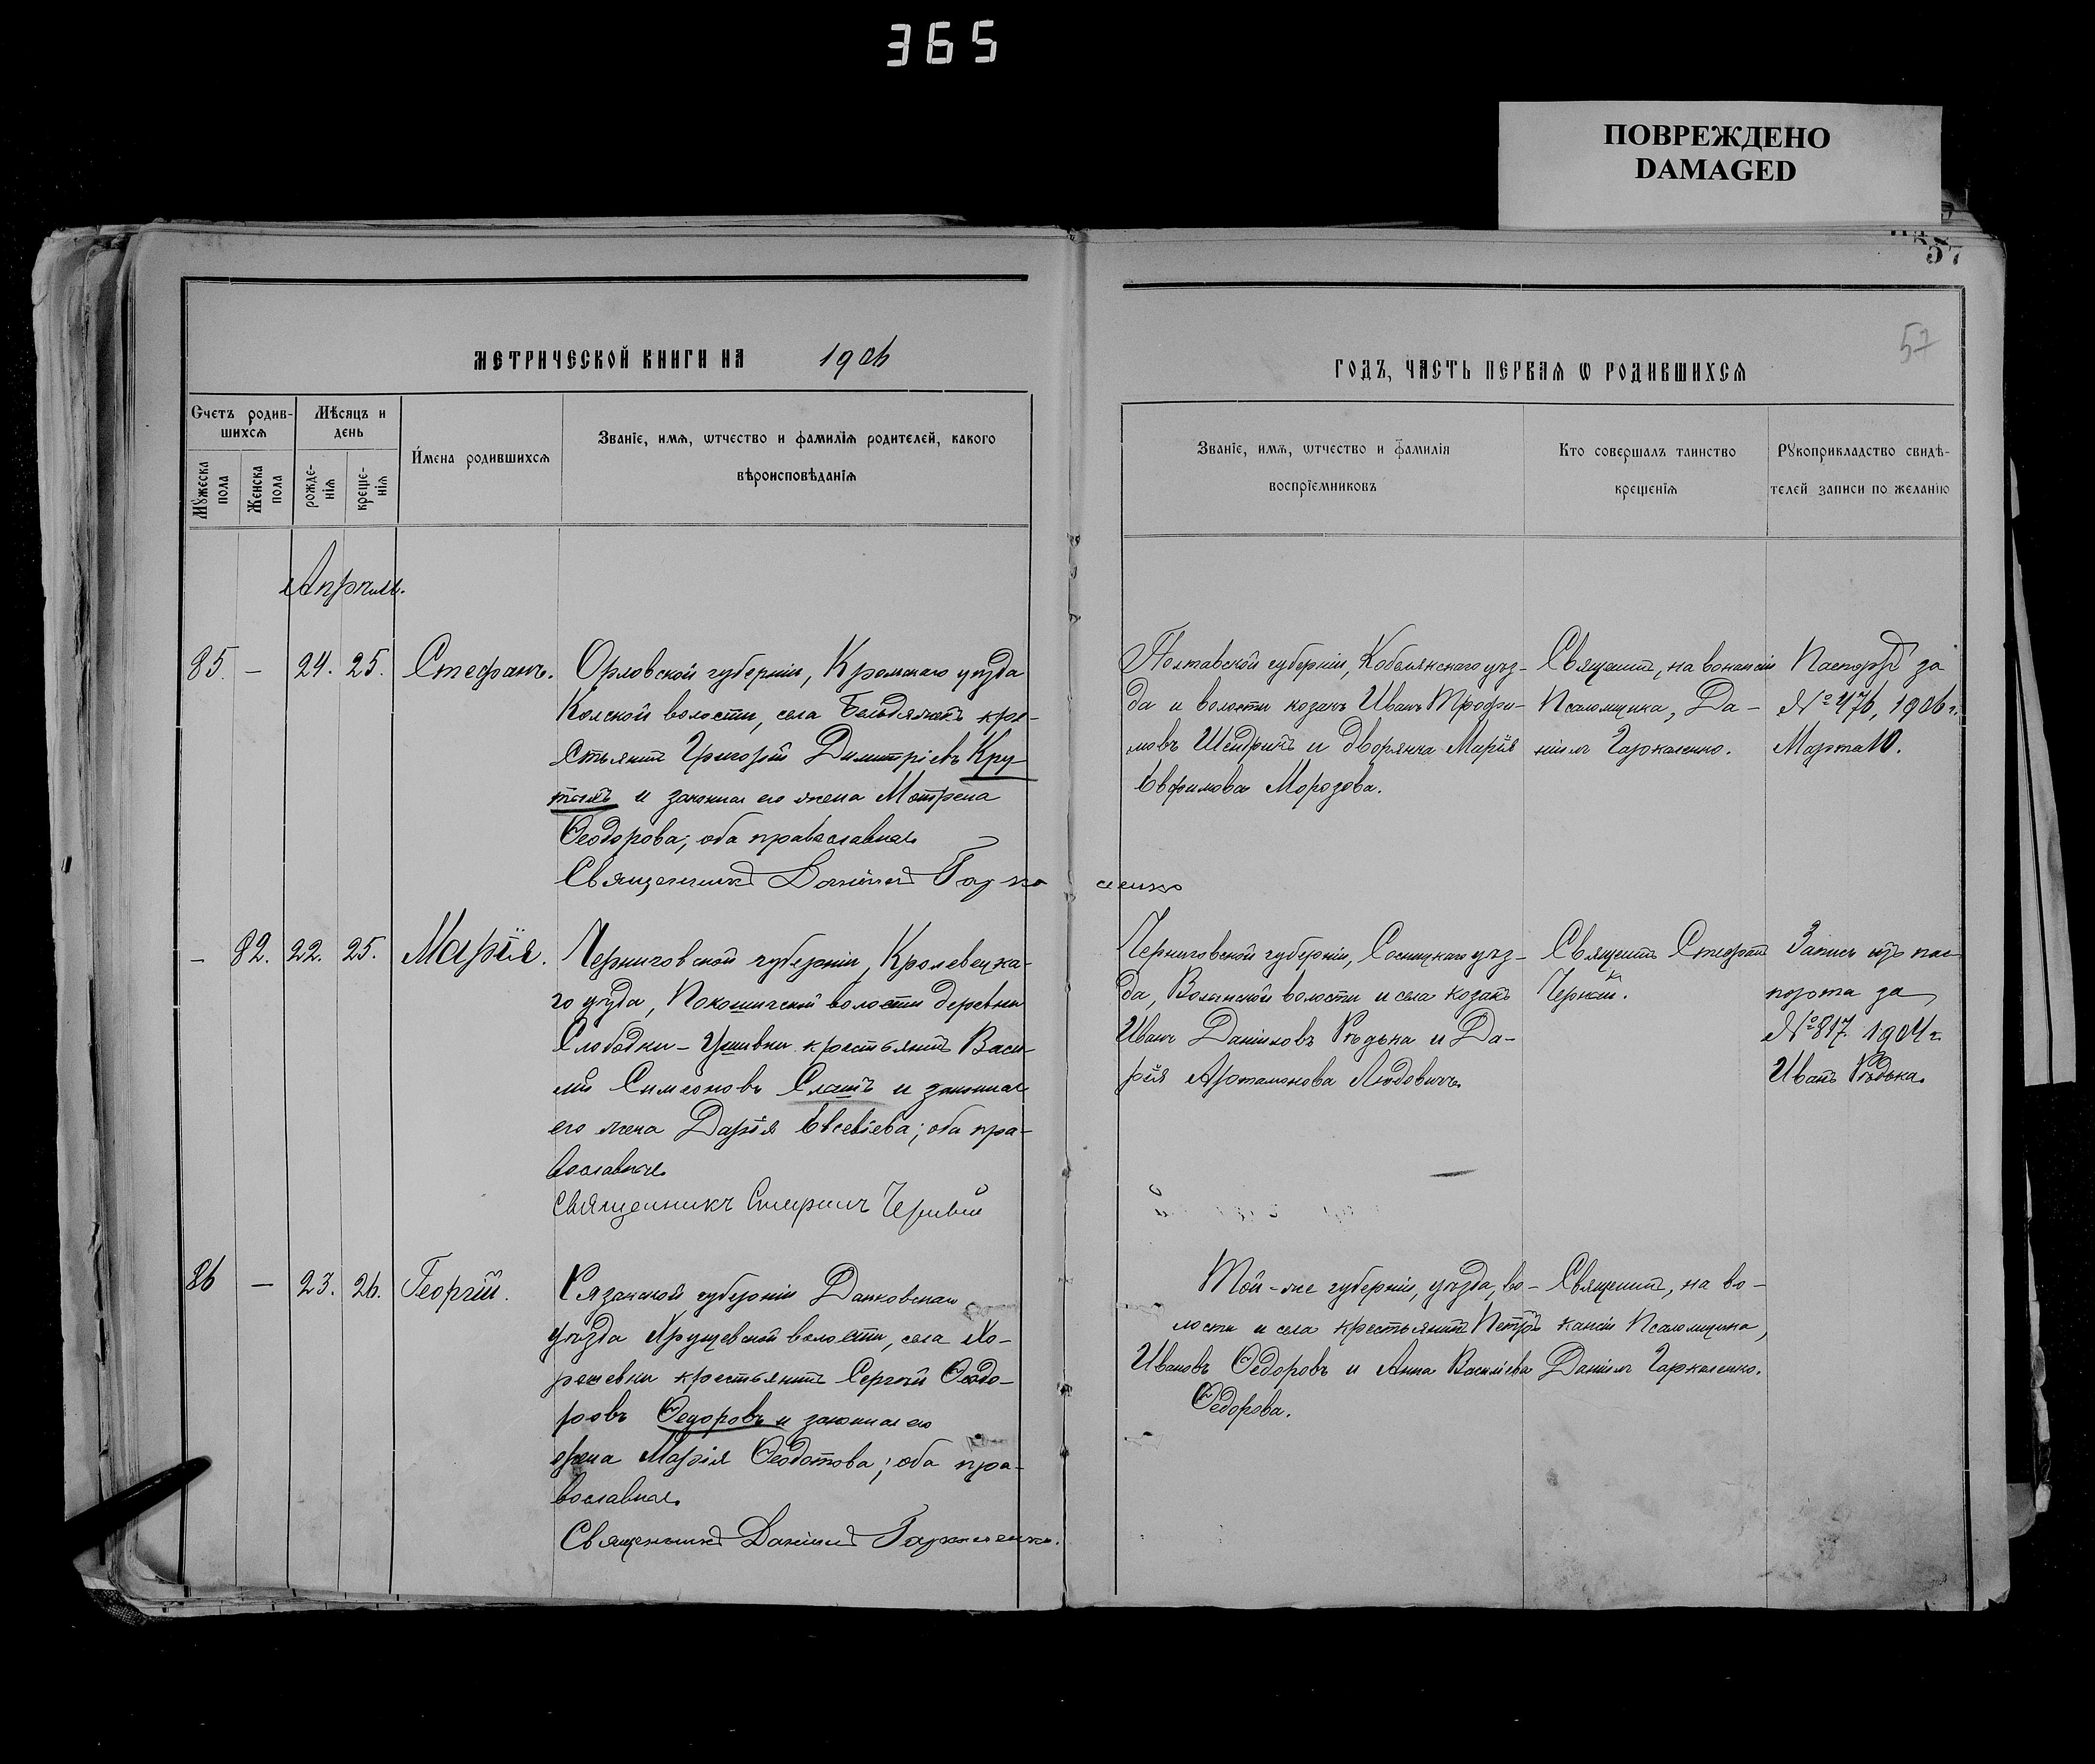 365
ПОВРЕЖДЕНО
DAMAGED
57
57
МЕТРИЧЕСКОЙ КНИГИ НА 1906
ГОДЪ, ЧАСТЬ ПЕРВАѦ Ѡ РОДИВШИХСѦ
Счетъ родив-
шихсѧ
Мѣсяцъ и
день
Мꙋжеска
пола
Женска
пола
рожде-
нїѧ
креще-
нїѧ
Имена родившихсѧ
Званїе, имѧ, ѡтчество и фамилїѧ родителей, какого
вѣроисповѣданїѧ
Званїе, имѧ, ѡтчество и фамилїѧ
воспрїемниковъ
Кто совершалъ таинство
крещенїѧ
Рꙋкоприкладство свидѣ-
телей записи по желанїю
Апрѣль.
85. — 24. 25. Стефанъ.
Орловской губерніи, Кромскаго уѣзда
волости, села крес-
стьянинъ Григорій Димитріевъ Кру-
и законная его жена Матрена
Ѳеодорова; оба православные
Священникъ Даніилъ Гаркаленко
Полтавской губерніи, Кобелякскаго уѣз-
да и волости козакъ Иванъ Трофи-
мовъ и дворянка Марія
Евфимова Морозова.
Священ., на вакансіи
Псаломщика, Да-
ніилъ Гаркаленко.
Паспортъ за
№ 476, 1906 г.
Марта 10.
— 82. 22. 25. Марія.
Черниговской губерніи, Кролевецка-
го уѣзда, Покошичской волости деревни
Слободки- крестьянинъ Васи-
лій Симеоновъ и законная
его жена Дарія Евсевіева; оба пра-
вославные
Священникъ Стефанъ
Черниговской губерніи, Сосницкаго уѣз-
да, Волынской волости и села козакъ
Иванъ Даніиловъ Рѣдька и Да-
рія Артамонова
Священ. Стефанъ
Запись изъ пас-
порта за
№ 817. 1904 г.
Иванъ Рѣдька.
86 — 23. 26. Георгій.
Рязанской губерніи Данковскаго
уѣзда Хрущевской волости, села Хо-
рошевки крестьянинъ Сергѣй Ѳеодо-
ровъ Ѳедоровъ и законная его
жена Марія Ѳеодотова; оба пра-
вославные.
Священникъ Даніилъ Гаркаленко.
Той-же губерніи, уѣзда, во-
лости и села крестьянинъ Петръ
Ивановъ Ѳедоровъ и Анна Васильева
Ѳедорова.
Священ., на ва-
кансіи Псаломщика,
Даніилъ Гаркаленко.